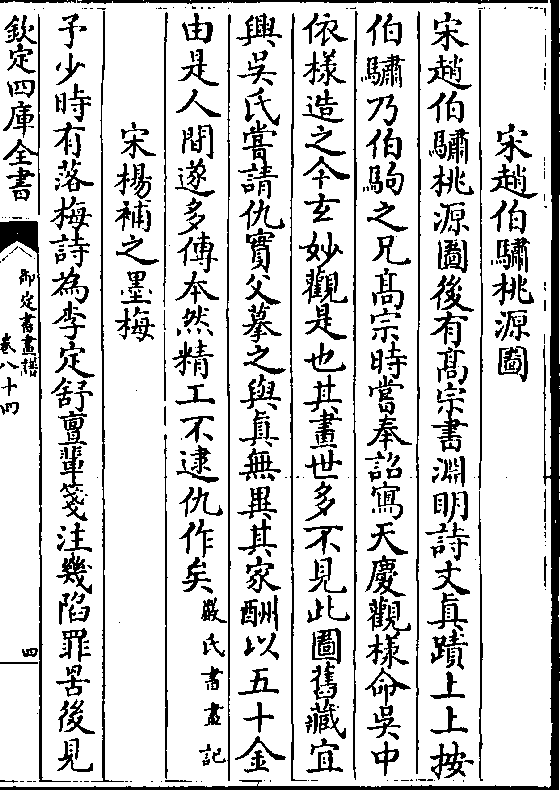 宋趙伯驌桃源圖
宋趙伯驌桃源圖後有髙宗書淵明詩文真蹟上上按
伯驌乃伯駒之兄髙宗時嘗奉詔寫天慶觀樣命吳中
依樣造之今玄妙觀是也其畫世多不見此圖舊藏宜
興吳氏嘗請仇實父摹之與真無異其家酬以五十金
由是人間遂多傳本然精工不逮仇作矣嚴氏書畫記
宋楊補之墨梅
予少時有落梅詩為李定舒亶輩箋注幾陷罪罟後見
欽定四庫全書
御定書畫譜
卷八十四
四